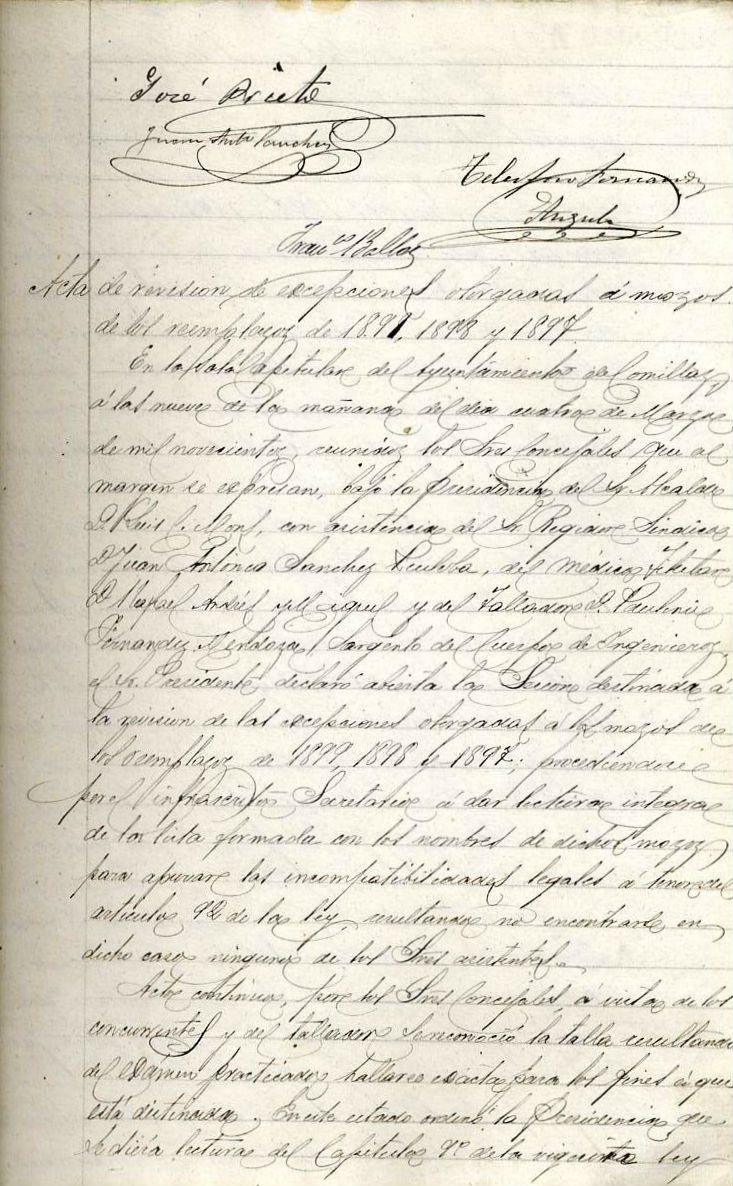 José Prieto
Juan Anto Sanchez
Telesforo Fernandez
Angula
Franco Balles
Acta de revision de excepciones otorgadas á mozos
de los reemplazos de 1899, 1898 y 1897
En la Sala Capitular del Ayuntamiento de Comillas,
á las nueve de la mañana del dia cuatro de Marzo
de mil novecientos, reunidos los Sres Concejales que al
margen se expresan, bajo la Presidencia del Sr. Alcalde
D. Luis C. Mons, con asistencia del Sr. Regidor Sindico
D. Juan Antonio Sanchez, del médico titular
D. Rafael Andrés y Miguel y del Tallador D. Paulino
Fernandez Mendoza, Sargento del Cuerpo de Ingenieros,
el Sr. Presidente declaró abierta la Sesion destinada á
la revision de las excepciones otorgadas á los mozos de
los reemplazos de 1899, 1898 y 1897; procediendose
por el infrascrito Secretario á dar lectura integra
de la lista formada con los nombres de dichos mozos,
para apurar las incompatibilidades legales á tenor del
articulo 92 de la ley, resultando no encontrarse en
dicho caso ninguno de los Sres asistentes.
Acto continuo, por los Sres Concejales, á vista de los
concurrentes y del tallador se reconoció la talla resultando
del exámen practicado hallarse exacta para los fines á que
está destinada. En este estado ordenó la Presidencia que
se diera lectura del Capitulo 9º de la vigente ley